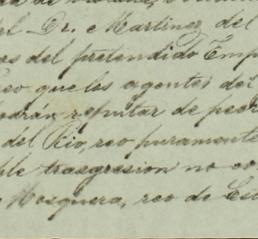 el Dr. Martinez, del
es del pretendido Emp
eo que los agentes del
podrán reputar de peor
del Rio, reo puramente
ble trasgresion no co
Mosquera, reo de Est